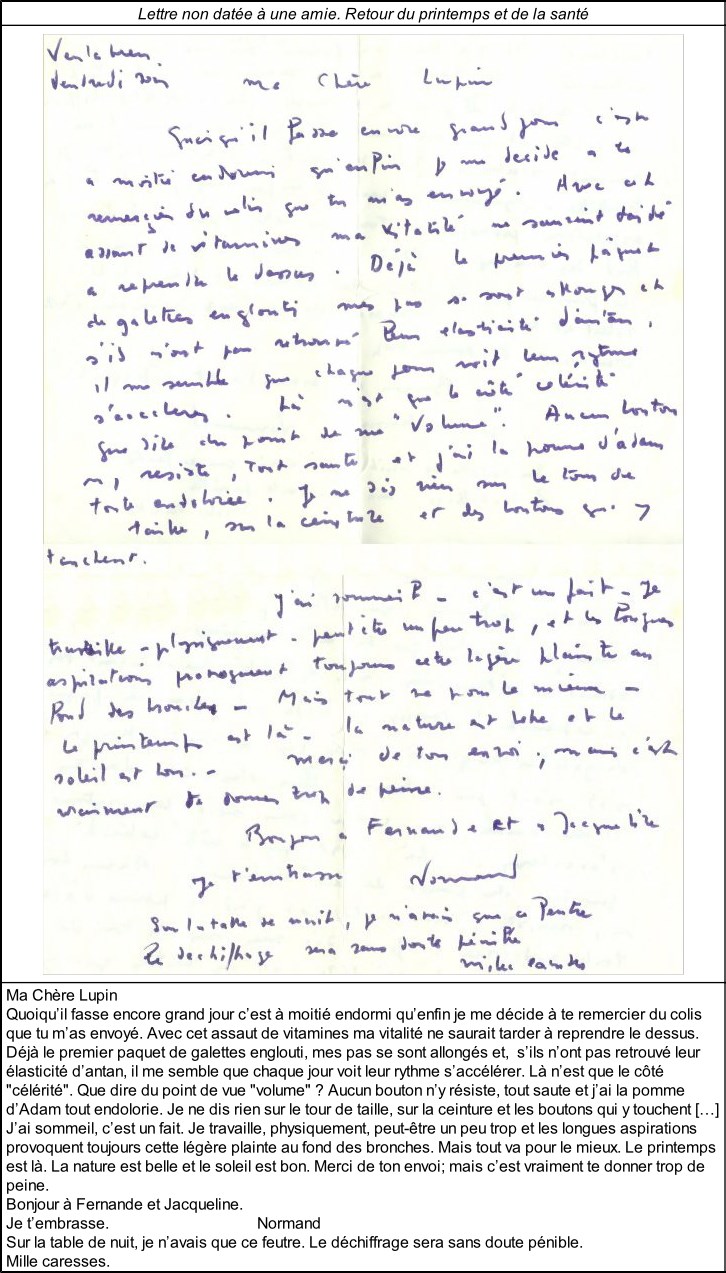 Lettre non datée à une amie. Retour du printemps et de la santé
Vendredi soir
Ma Chère Lupin
Quoiqu'il fasse encore grand jour c'est
a moitié endormi qu'enfin je me decide a te
remercier du colis que tu m'as envoyé. Avec cet
assaut de vitamines ma vitalité ne saurait tarder
a reprendre le dessus. Déjà le premier paquet
de galettes englouti mes pas se sont allongés et
s'ils n'ont pas retrouvé leur elasticité d'antan,
il me semble que chaque jour voit leur rytme
s'accelerer. Là n'est que le côté célérité
que dire du point de vue "Volume". Aucun bouton
n'y resiste, tout saute et j'ai la pomme d'adam
toute endolorie. Je ne dis rien sur le tour de
taille, sur la ceinture et des boutons qui y
touchent.
J'ai sommeil - c'est un fait - Je
travaille - physiquement - peut être un peu trop, et les longues
aspirations provoquent toujours cette légère plainte au
fond des bronches - Mais tout va pour le mieux -
Le printemps est là - la nature est belle et le
soleil est bon. - merci de ton envoi; mais c'est
vraiment te donner trop de peine.
Bonjour a Fernande et a Jacqueline
Je t'embrasse Normand
Sur la table de nuit, je n'avais que ce feutre
Le dechiffrage sera sans doute pénible
mille caresses
Ma Chère Lupin
Quoiqu'il fasse encore grand jour c'est à moitié endormi qu'enfin je me décide à te remercier du colis
que tu m'as envoyé. Avec cet assaut de vitamines ma vitalité ne saurait tarder à reprendre le dessus.
Déjà le premier paquet de galettes englouti, mes pas se sont allongés et, s'ils n'ont pas retrouvé leur
élasticité d'antan, il me semble que chaque jour voit leur rythme s'accélérer. Là n'est que le côté
"célérité". Que dire du point de vue "volume" ? Aucun bouton n'y résiste, tout saute et j'ai la pomme
d'Adam tout endolorie. Je ne dis rien sur le tour de taille, sur la ceinture et les boutons qui y touchent […]
J'ai sommeil, c'est un fait. Je travaille, physiquement, peut-être un peu trop et les longues aspirations
provoquent toujours cette légère plainte au fond des bronches. Mais tout va pour le mieux. Le printemps
est là. La nature est belle et le soleil est bon. Merci de ton envoi; mais c'est vraiment te donner trop de
peine.
Bonjour à Fernande et Jacqueline.
Je t'embrasse. Normand
Sur la table de nuit, je n'avais que ce feutre. Le déchiffrage sera sans doute pénible.
Mille caresses.